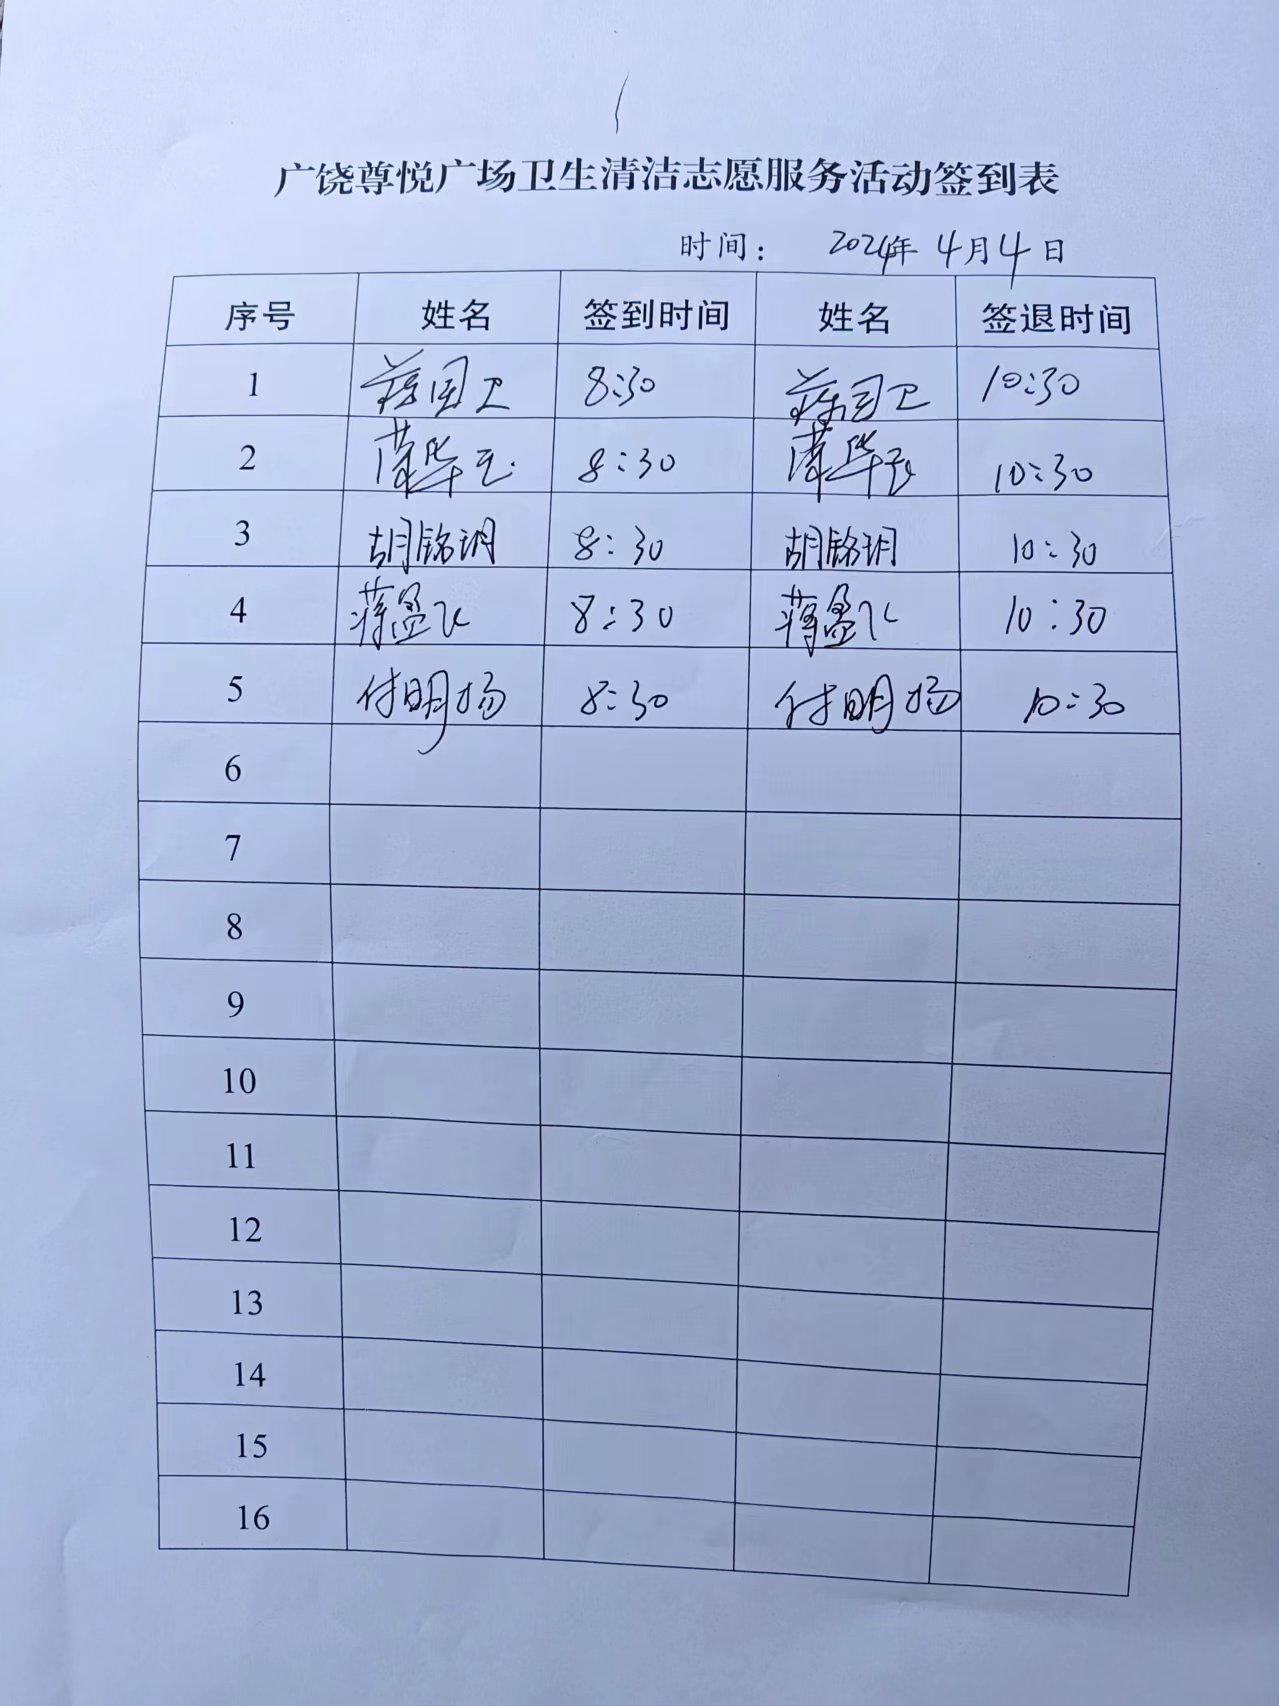 广饶尊悦广场卫生清洁志愿服务活动签到表
时间： 2024年 4月4日
序号 姓名 签到时间 姓名 签退时间
1 国卫 8:30 国卫 10:30
2 华 8:30 华 10:30
3 胡铭玥 8:30 胡铭玥 10:30
4 蒋盈飞 8:30 蒋盈飞 10:30
5 付明扬 8:30 付明扬 10:30
6
7
8
9
10
11
12
13
14
15
16